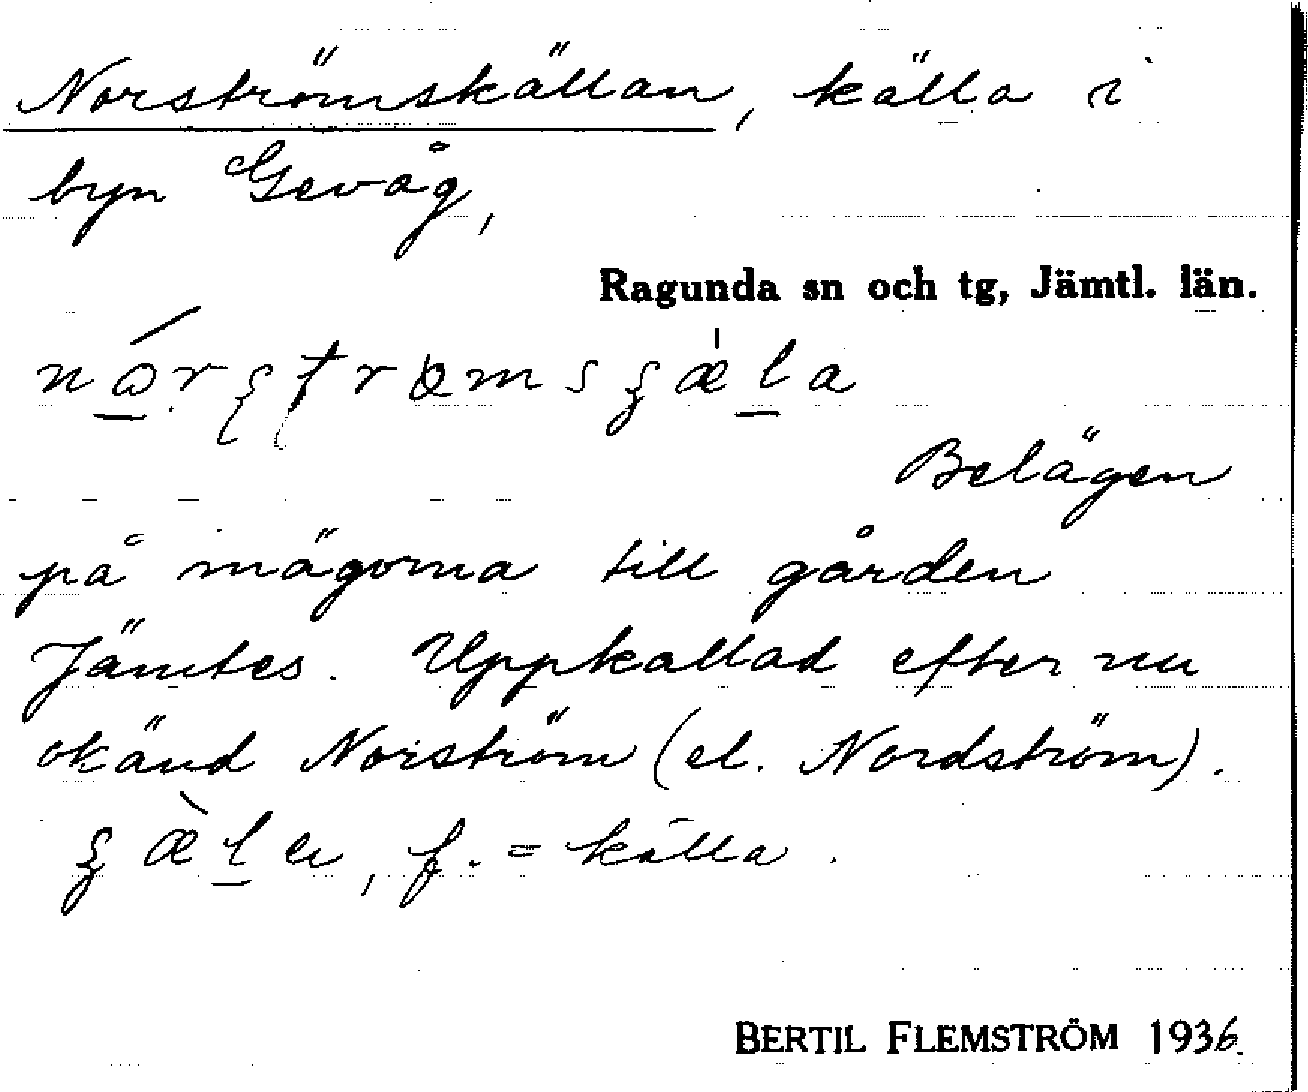 Norströmskällan, källa i
byn Gevåg,
Ragunda sn och tg, Jämtl. län.
Belägen
på mägorna till gården
Jämtes. Uppkallad efter nu
okänd Norström (el. Nordström).
f. = källa.
BERTIL FLEMSTRÖM 1936.